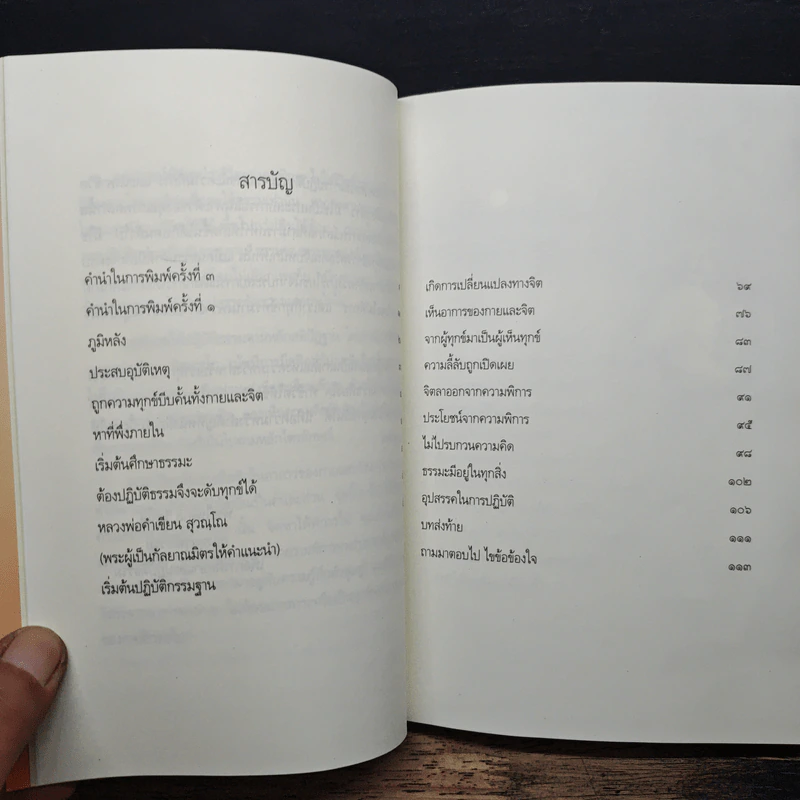 สารบัญ
คำนำในการพิมพ์ครั้งที่ ๓
คำนำในการพิมพ์ครั้งที่ ๑
ภูมิหลัง
ประสบอุบัติเหตุ
ถูกความทุกข์บีบคั้นทั้งกายและจิต
หาที่พึ่งภายใน
เริ่มต้นศึกษาธรรมะ
ต้องปฏิบัติธรรมจึงจะดับทุกข์ได้
หลวงพ่อคำเขียน สุวณฺโณ
(พระผู้เป็นกัลยาณมิตรให้คำแนะนำ)
เริ่มต้นปฏิบัติกรรมฐาน
เกิดการเปลี่ยนแปลงทางจิต ๖๙
เห็นอาการของกายและจิต ๗๖
จากผู้ทุกข์มาเป็นผู้เห็นทุกข์ ๘๓
ความลี้ลับถูกเปิดเผย ๘๗
จิตลาออกจากความพิการ ๙๑
ประโยชน์จากความพิการ ๙๕
ไม่ไปรบกวนความคิด ๙๘
ธรรมะมีอยู่ในทุกสิ่ง ๑๐๒
อุปสรรคในการปฏิบัติ ๑๐๖
บทส่งท้าย ๑๑๑
ถามมาตอบไป ไขข้อข้องใจ ๑๑๓